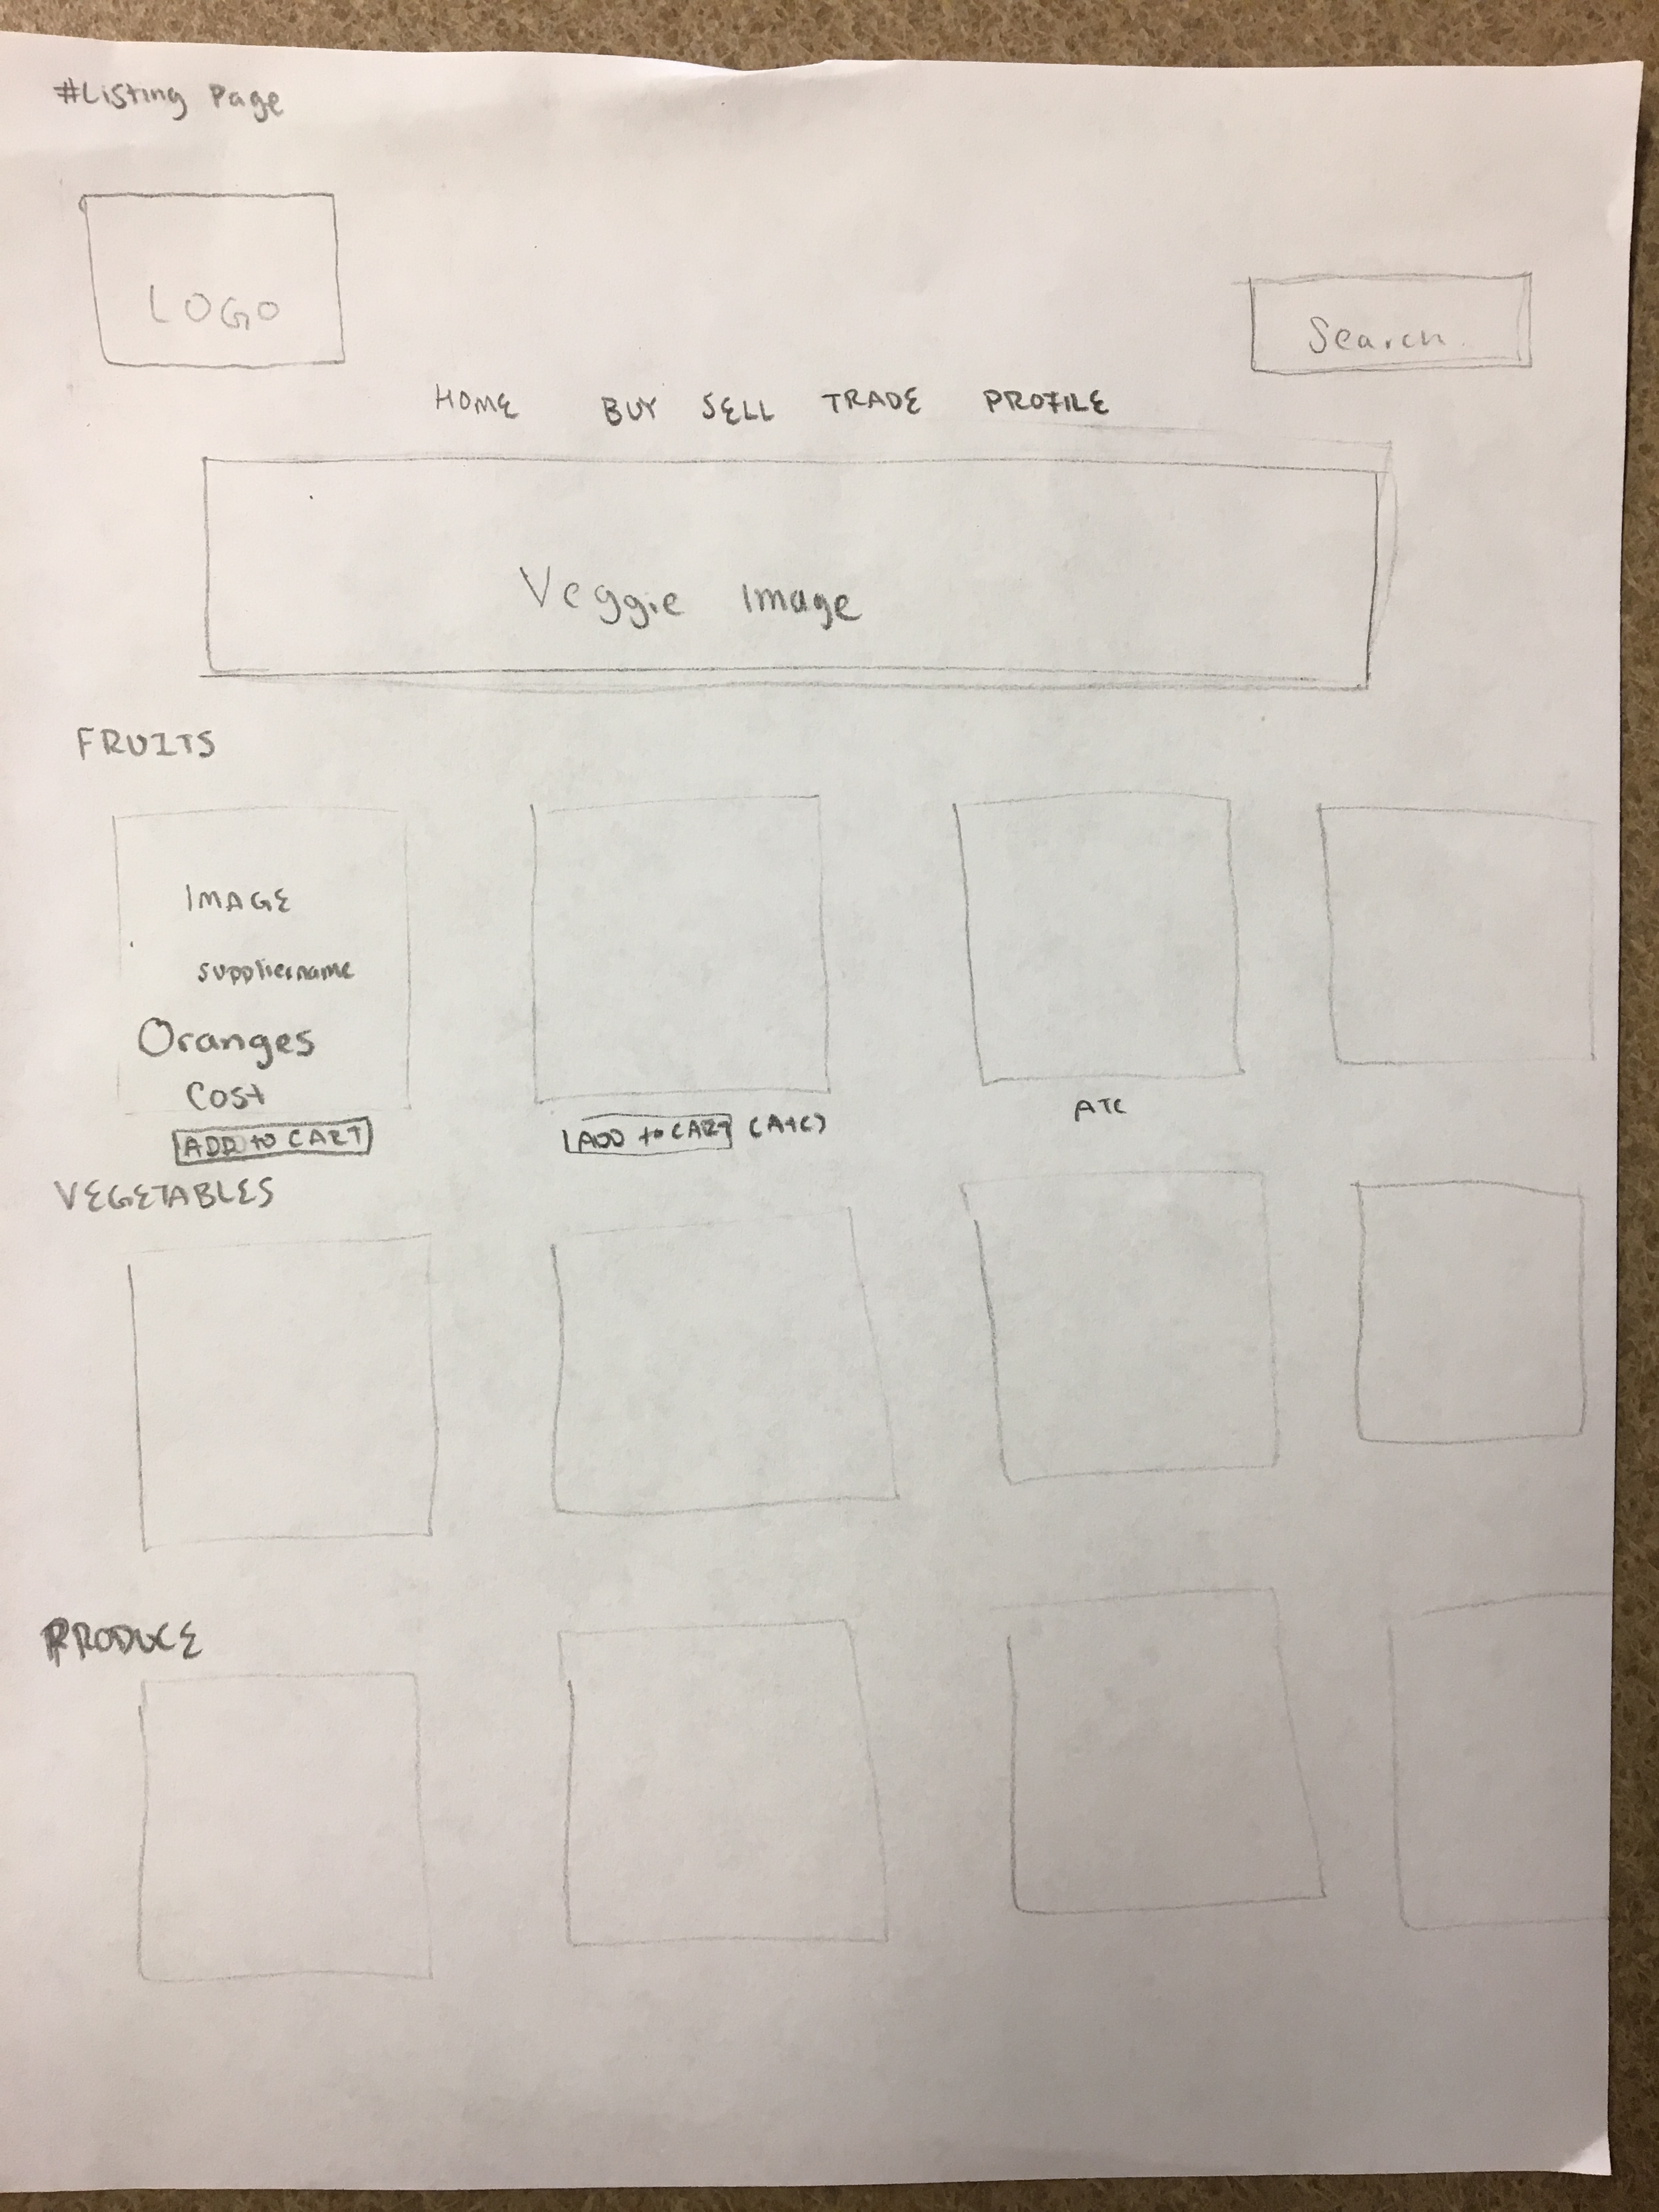 #Listing Page
LOGO
Search
HOME BUY SELL TRADE PROFILE
Veggie Image
FRUITS
IMAGE
suppliername
Oranges
Cost
ADD to CART
ADD to CART (Atc)
ATC
VEGETABLES
PRODUCE